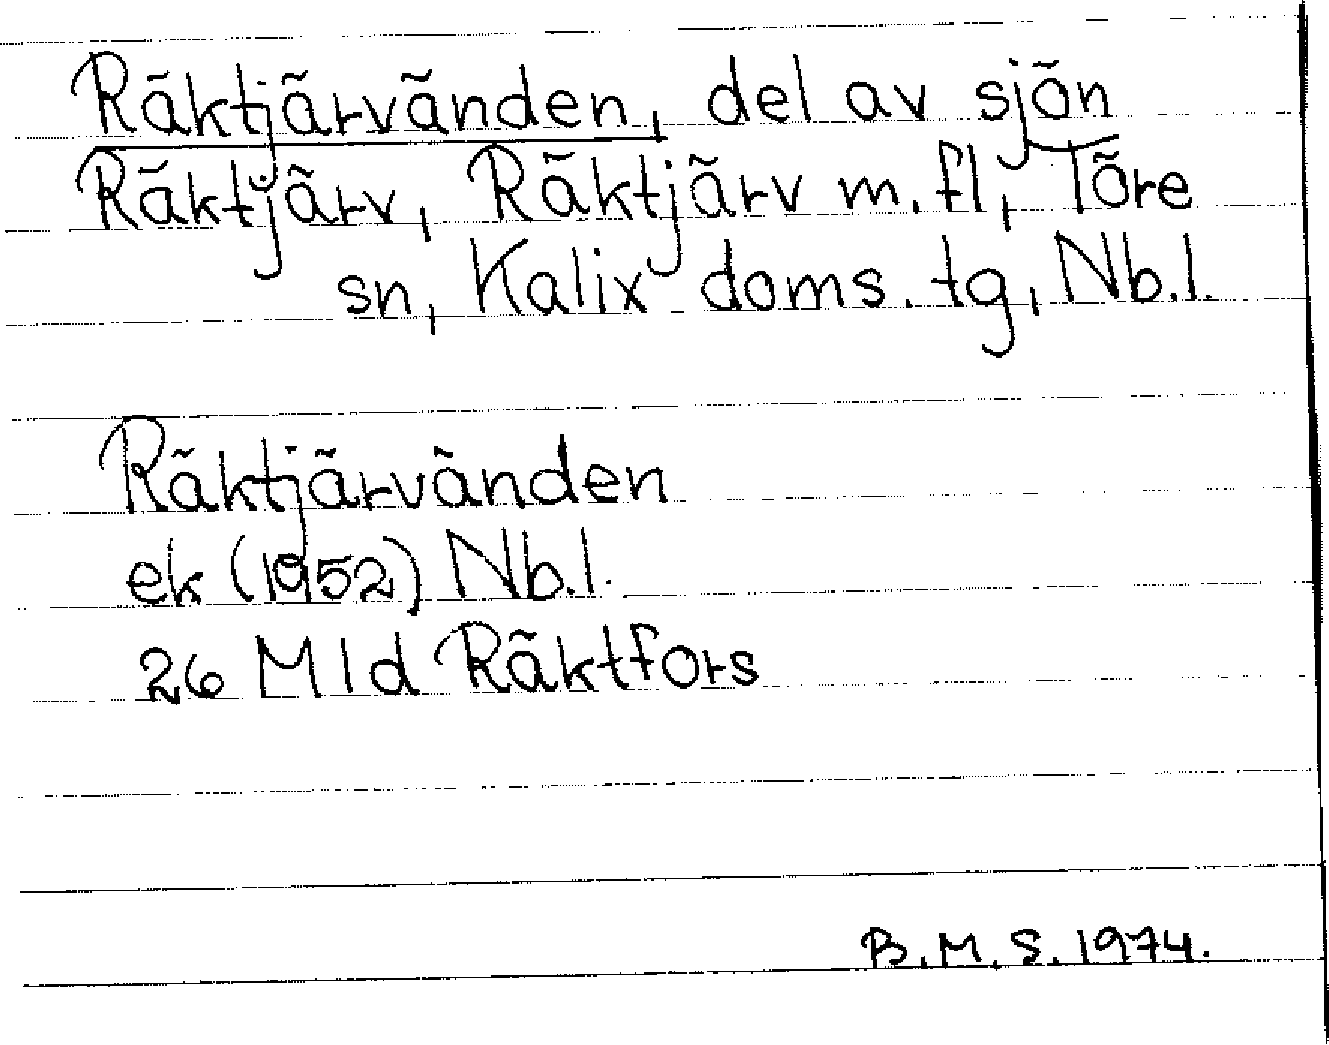 Räktjärvänden, del av sjön
Räktjärv, Räktjärv m.fl, Töre
sn, Kalix doms.tg, Nb.l.
Räktjärvänden
ek (1952) Nb.l.
26 M 1d Räktfors
B.M.S. 1974.